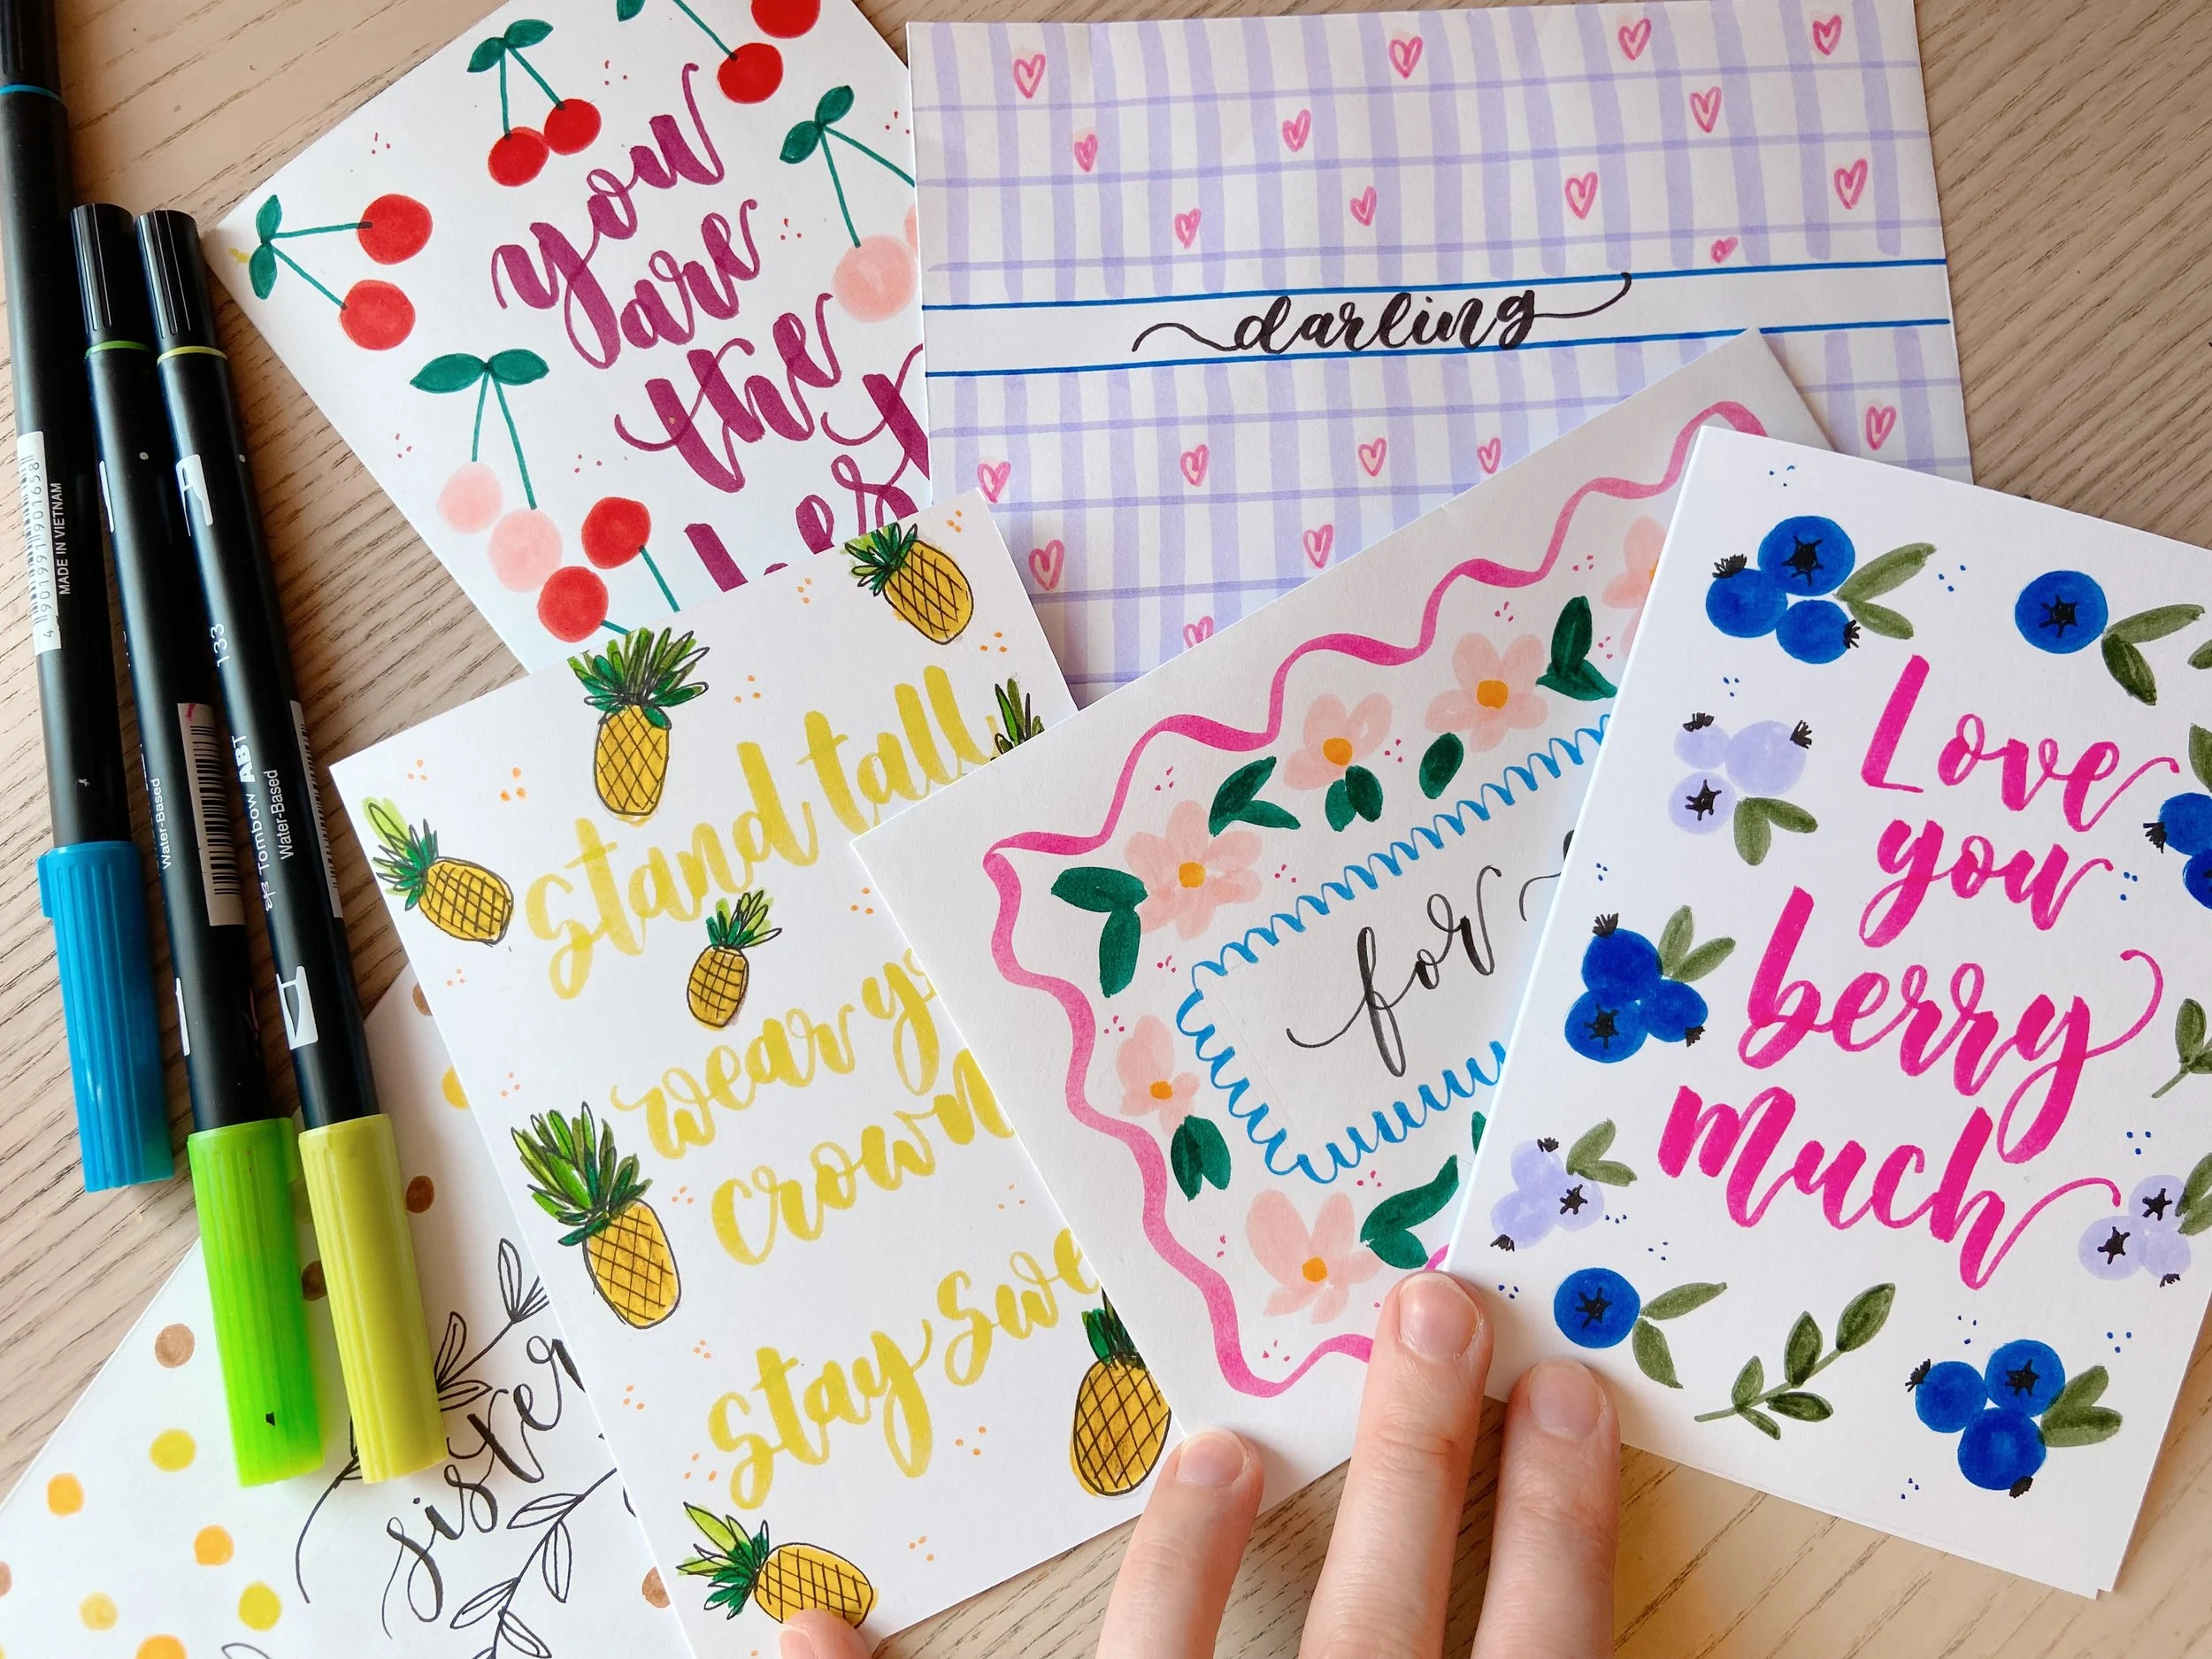 you
are
the
best
darling
stand tall
wear
crown
stay
for
Love
you
berry
much
sister
4 901991 901658
MADE IN VIETNAM
Water-Based
133
Tombow ABT
Water-Based